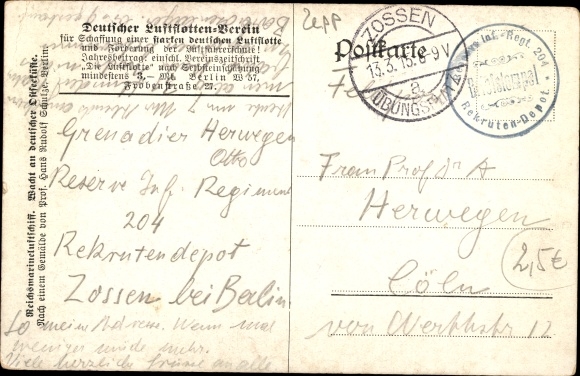 Deutscher Luftflotten-Verein
für Schaffung einer starken deutschen Luftflotte
und Förderung der Luftfahrerschule!
Jahresbeitrag: einschl. Vereinszeitschrift
"Die Luftflotte" und Schrifteneinschreibung
mindestens 3,— Mk. Berlin W 57,
Frobenstraße
Reichsmarineluftschiff. Wacht an deutscher Ostseeküste.
Nach einem Gemälde von Prof. Hans Rudolf Schulze, Berlin.
Zepp
Postkarte
ZOSSEN
13.3.15. 8-9V
a
ÜBUNGSPLATZ
Inf.-Regt. 204
Rekruten-Depot
Grenadier Herwegen
Otto
Reserve Inf. Regiment
204
Rekrutendepot
Zossen bei Berlin
So meine Adresse. Wenn mal
weniger müde mehr.
Viele herzliche Grüße an alle
Frau Prof Dr A
Herwegen
Cöln
von Werthstr 12
2,5€